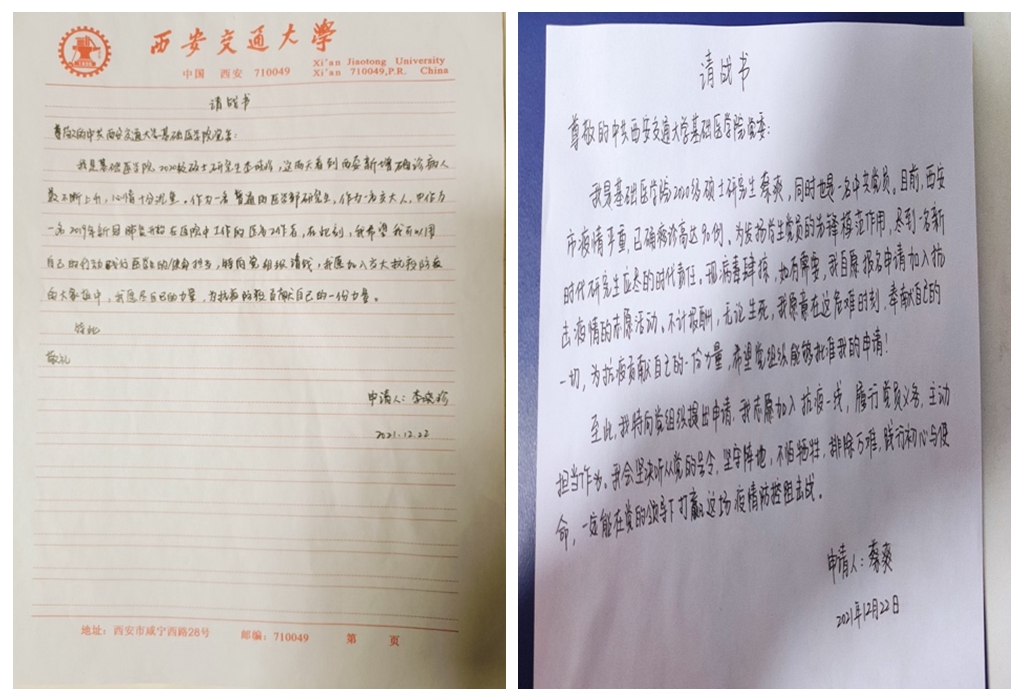 西安交通大学
中国 西安 710049
Xi'an Jiaotong University
Xi'an 710049,P.R. China
请战书
尊敬的中共西安交通大学基础医学院党委:
我是基础医学院2020级硕士研究生李,这两天看到西安新增确诊病人
数不断上升,心情十分沉重。作为一名普通的医学部研究生,作为一名交大人,更作为
一名2019年新冠肺炎开始在医院中工作的医务工作者,在此刻,我希望我可以用
自己的行动践行医学生的使命担当,特向党组织请战,我愿加入交大抗疫防疫
的大家庭中,我愿尽自己的力量,为抗疫防疫贡献自己的一份力量。
特此
敬礼
申请人:李
2021.12.22
地址:西安市咸宁西路28号 邮编:710049 第 页
请战书
尊敬的中共西安交通大学基础医学院党委:
我是基础医学院2020级硕士研究生蔡爽,同时也是一名中共党员。目前,西安
市疫情严重,已确诊病例高达90例。为发扬学生党员的先锋模范作用,尽到一名新
时代研究生应尽的时代责任。现病毒肆掠,如有需要,我自愿报名申请加入抗
击疫情的志愿活动。不计报酬,无论生死,我愿意在这危难时刻,奉献自己的
一切,为抗疫贡献自己的一份力量,希望党组织能够批准我的申请!
至此,我特向党组织提出申请,我志愿加入抗疫一线,履行党员义务,主动
担当作为。我会坚决听从党的号令,坚守阵地,不怕牺牲,排除万难,践行初心与使
命,一定能在党的领导下打赢这场疫情防控阻击战。
申请人:蔡爽
2021年12月22日